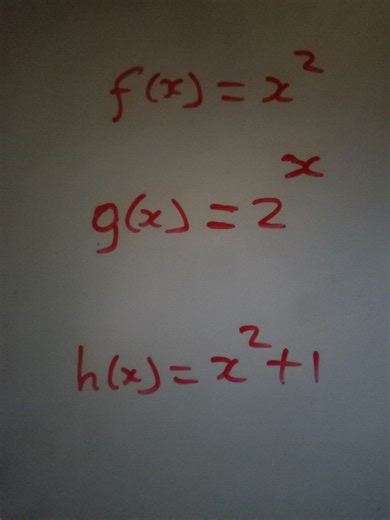 f(x) = x²
g(x) = 2ˣ
h(x) = x² + 1